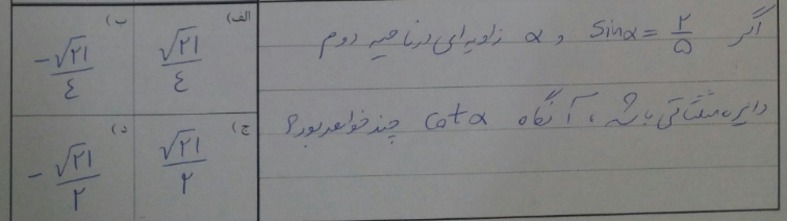 اگر sinα = ۲/۵ و α زاویه‌ای در ناحیه دوم
دایره مثلثاتی باشد، آنگاه cotα چند خواهد بود؟
الف) √۲۱/٤
ب) -√۲۱/٤
ج) √۲۱/۲
د) -√۲۱/۲